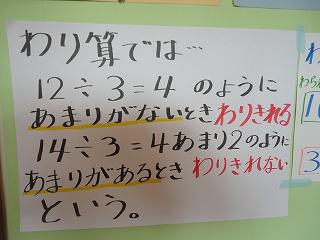 わり算では…
12÷3=4 のように
あまりがないとき わりきれる
14÷3=4あまり2のように
あまりがあるとき わりきれない
という。